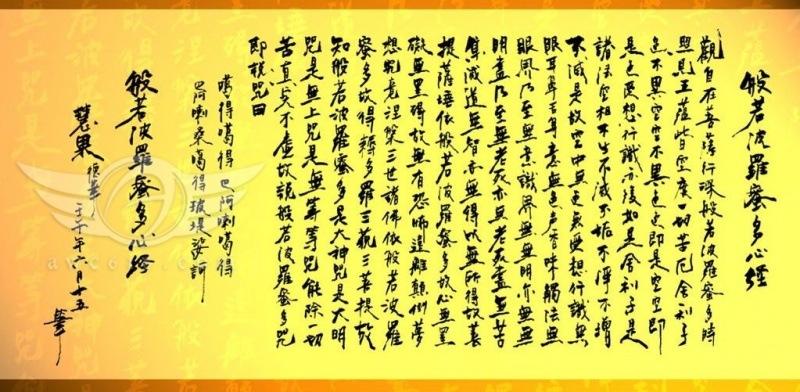 般若波羅蜜多心経
觀自在菩薩行深般若波羅蜜多時
照見五蘊皆空度一切苦厄舍利子
色不異空空不異色色即是空空即
是色受想行識亦復如是舍利子是
諸法空相不生不滅不垢不淨不增
不減是故空中無色無受想行識無
眼耳鼻舌身意無色声香味觸法無
眼界乃至無意識界無無明亦無無
明盡乃至無老死亦無老死盡無苦
集滅道無智亦無得以無所得故菩
提薩埵依般若波羅蜜多故心無罣
礙無罣碍故無有恐怖遠離顛倒夢
想究竟涅槃三世諸佛依般若波羅
蜜多故得耨多羅三藐三菩提故
知般若波羅蜜多是大神咒是大明
咒是無上咒是無等等咒能除一切
苦真实不虛故說般若波羅蜜多咒
即說咒曰
噶得噶得 巴阿喇噶得
巴阿喇桑噶得 玻堤娑訶
般若波羅蜜多心経
慧果
年六月十五